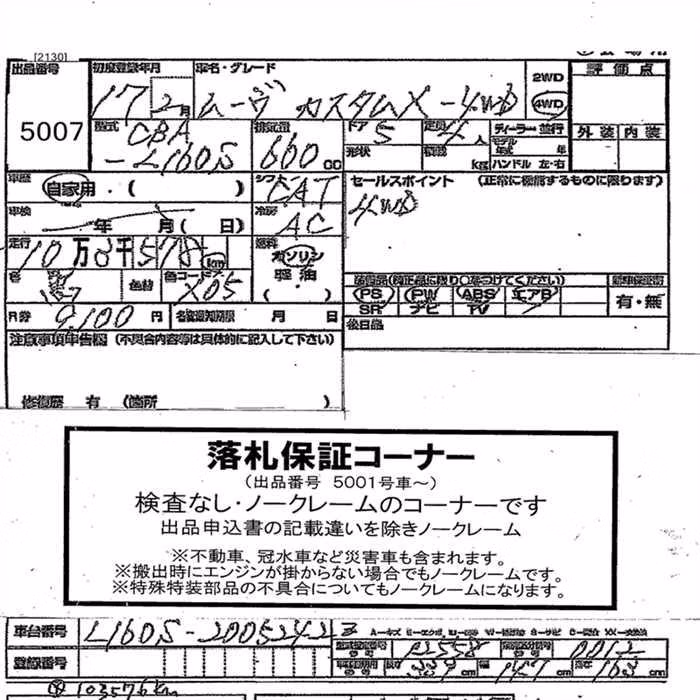 [2130]
出品番号 初度登録年月 車名・グレード 2WD 評価点
5007 17 2月 ムーヴ カスタムX-4WD 4WD
型式 CBA 排気量 ドア 5 定員 4人 ディーラー 並行 外装 内装
-L160S 660 CC 形状 積載 kg モデル年式 年
ハンドル 左・右
車歴 自家用・( ) シフト CAT セールスポイント (正常に機能するものに限ります)
車検 年 月( 日) 冷房 AC 4WD
走行 10万3千578km 燃料 ガソリン
色替 色コード X05 軽油 ( ・ )
装備品(純正品に限り○をつけてください) 新車保証書
PS PW ABS エアB 有・無
SR ナビ TV
R券 9,100円 名変通知期限 月 日 後日品
注意事項申告欄 (不具合内容等は具体的に記入して下さい)
修復歴 有 (箇所 )
落札保証コーナー
(出品番号 5001号車～)
検査なし・ノークレームのコーナーです
出品申込書の記載違いを除きノークレーム
※不動車、冠水車など災害車も含まれます。
※搬出時にエンジンが掛からない場合でもノークレームです。
※特殊特装部品の不具合についてもノークレームになります。
車台番号 L160S-2005242
登録番号 長さ 339cm 幅 147cm 高さ 163cm
103576km